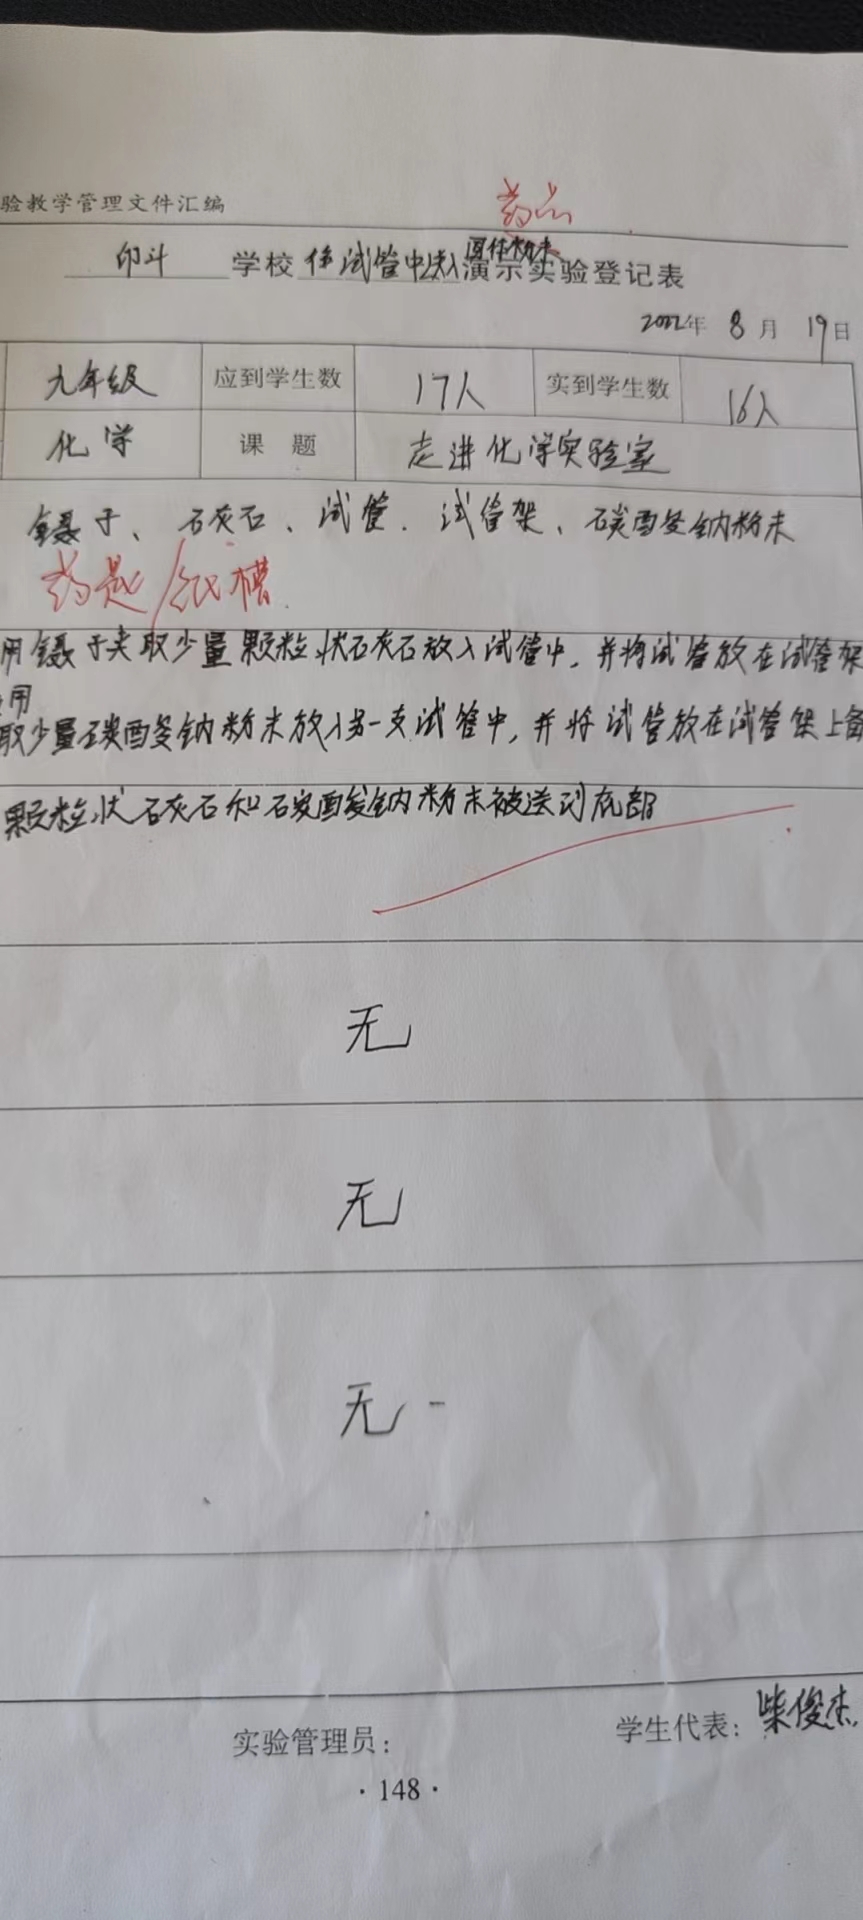 验教学管理文件汇编
药品
印斗 学校 往试管中送入固体粉末 演示实验登记表
2022年 8 月 19 日
九年级 应到学生数 17人 实到学生数 16人
化学 课 题 走进化学实验室
镊子、石灰石、试管、试管架、碳酸钠粉末
药匙/纸槽
用镊子夹取少量颗粒状石灰石放入试管中，并将试管放在试管架
用
取少量碳酸钠粉末放入另一支试管中，并将试管放在试管架上备
颗粒状石灰石和碳酸钠粉末被送到底部
无
无
无
实验管理员： 学生代表：柴俊杰
·148·